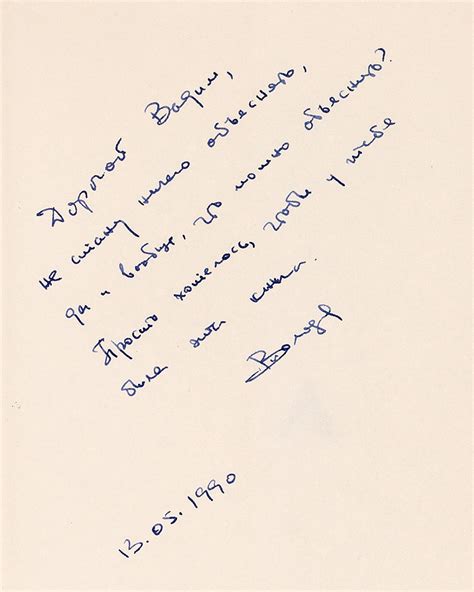 Дорогой Вадим,
не стану ничего объяснять,
да и вообще, что можно объяснить?
Просто хотелось, чтобы у тебя
была эта книга.
Володя
13.05.1990